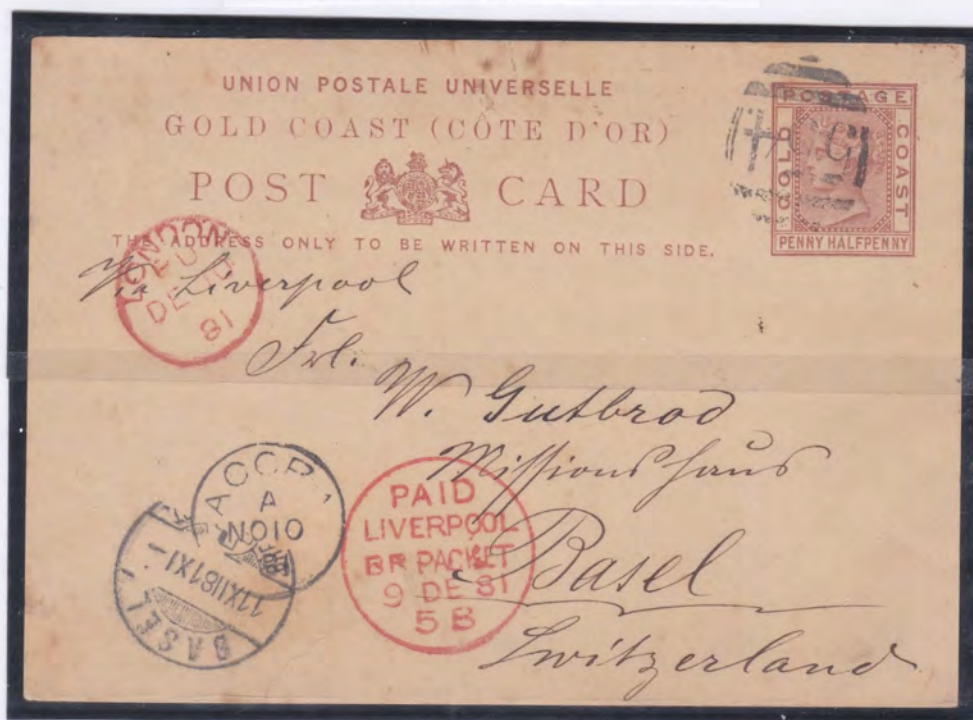 UNION POSTALE UNIVERSELLE
GOLD COAST (CÔTE D'OR)
POST CARD
THE ADDRESS ONLY TO BE WRITTEN ON THIS SIDE.
POSTAGE
GOLD
COAST
PENNY HALFPENNY
Via Liverpool
LONDON
DE
81
Frl.
W. Gutbrod
Missionshaus
Basel
Switzerland
ACCRA
A
NO10
81
PAID
LIVERPOOL
BR PACKET
9 DE 81
5B
11XII81XI
BASEL